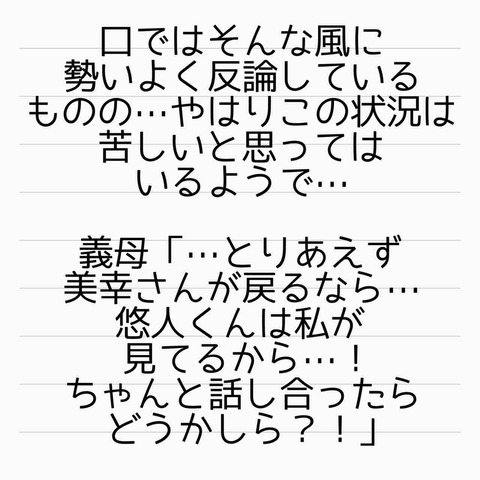 口ではそんな風に
勢いよく反論している
ものの…やはりこの状況は
苦しいと思っては
いるようで…
義母「…とりあえず
美幸さんが戻るなら…
悠人くんは私が
見てるから…！
ちゃんと話し合ったら
どうかしら？！」